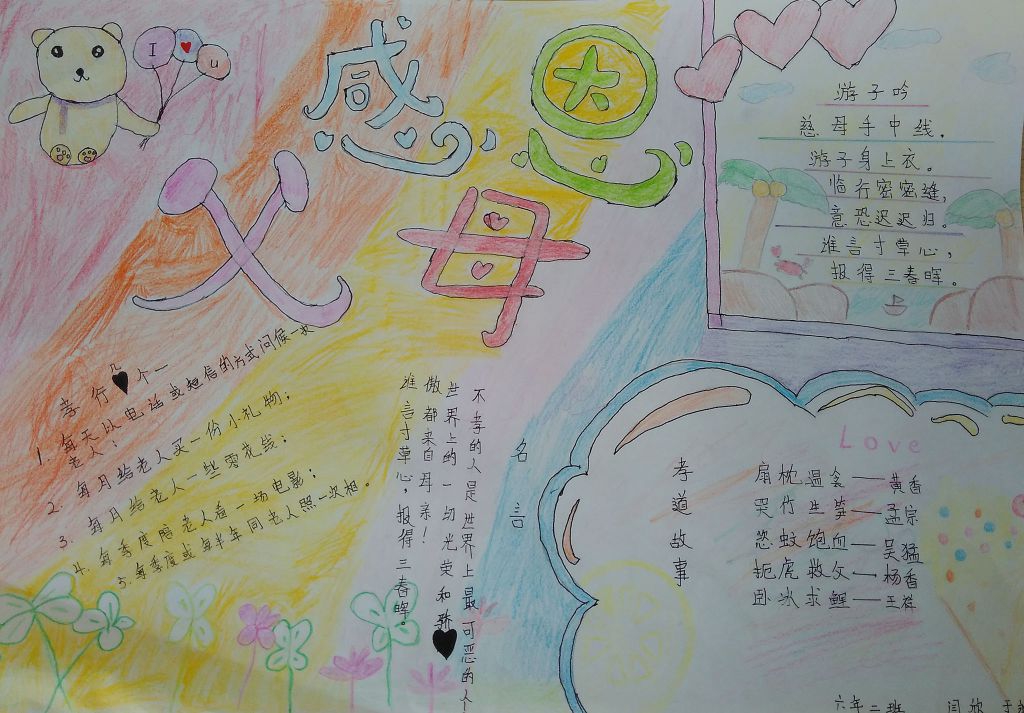 I ♥ u
感恩
父母
游子吟
慈母手中线，
游子身上衣。
临行密密缝，
意恐迟迟归。
谁言寸草心，
报得三春晖。
孝行几个一
1. 每天以电话或短信的方式问候一次
老人；
2. 每月给老人买一份小礼物；
3. 每月给老人一些零花钱；
4. 每季度陪老人看一场电影；
5. 每季度或每半年同老人照一次相。
名言
不孝的人是世界上最可恶的人
世界上的一切光荣和骄
傲都来自母亲！
谁言寸草心，报得三春晖。
Love
孝道故事
扇枕温衾——黄香
哭竹生笋——孟宗
恣蚊饱血——吴猛
扼虎救父——杨香
卧冰求鲤——王祥
六年二班